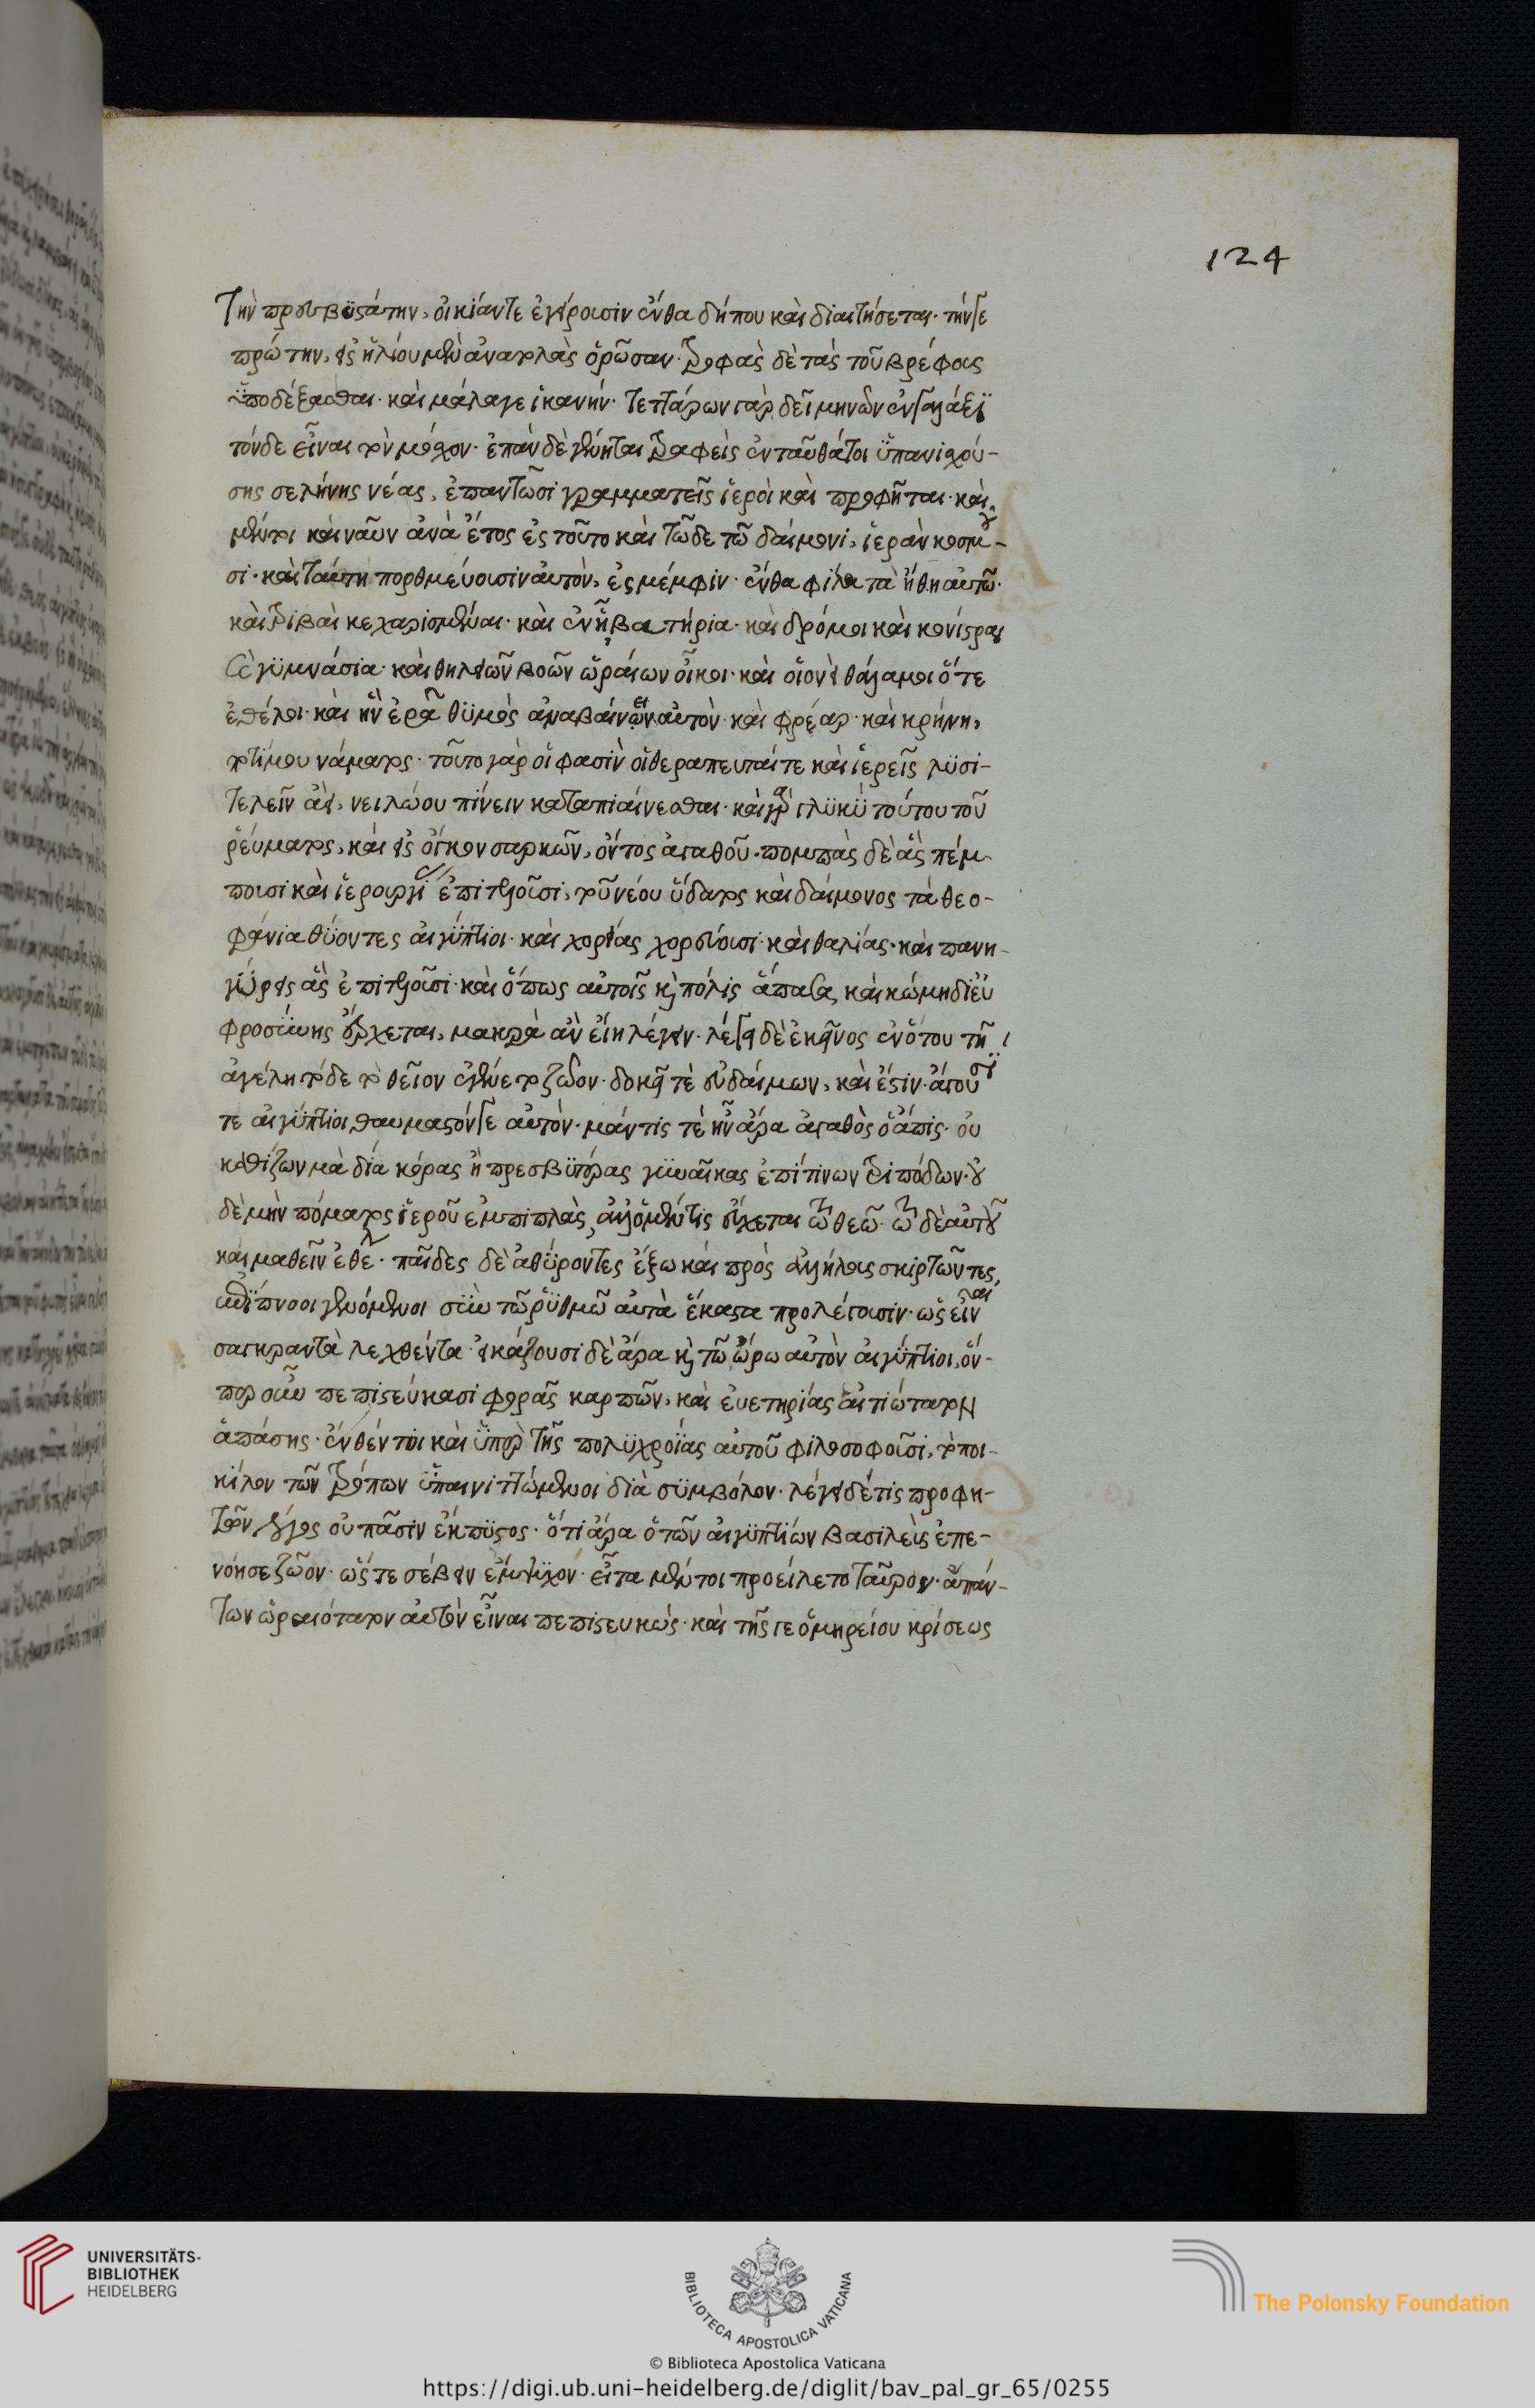 124
τὴν πρεσβυτάτην, οἰκίαν τε ἐγείρουσιν ἔνθα δήπου καὶ διαιτήσεται· τήν γε
πρώτην, εἰς ἡλίου μὲν ἀνατολὰς ὁρῶσαν· τροφὰς δὲ τὰς τοῦ βρέφους
ὑποδέξασθαι· καὶ μάλα γε ἱκανήν· τεττάρων γὰρ δεῖ μηνῶν ἐν γάλακτι
τόνδε εἶναι τὸν μόσχον· ἐπὰν δὲ γένηται τραφεὶς ἐνταῦθά τοι ὑπανισχού-
σης σελήνης νέας, ἀπαντῶσι γραμματεῖς ἱεροὶ καὶ προφῆται· καὶ
μέντοι καὶ ναῦν ἀνὰ ἔτος ἐς τοῦτο καὶ τῶδε τῶ δαίμονι, ἱερὰν κοσμοῦ-
σι· καὶ ταύτη πορθμεύουσιν αὐτὸν, ἐς μέμφιν· ἔνθα φίλα τὰ ἤθη αὐτῶ·
καὶ τριβαὶ κεχαρισμέναι· καὶ ἐνηβατήρια· καὶ δρόμοι καὶ κονίστραι
καὶ γυμνάσια· καὶ θηλειῶν βοῶν ὡραίων οἶκοι· καὶ οἱονεὶ θάλαμοι ὅτε
ἐθέλοι· καὶ ἢν ἐρᾶ θυμὸς ἀναβαίνειν αὐτὸν· καὶ φρέαρ· καὶ κρήνη,
ποτίμου νάματος· τοῦτο γὰρ οἵ φασιν οἱ θεραπευταί τε καὶ ἱερεῖς λυσι-
τελεῖν ἀεὶ, νειλώου πίνειν καταπιαίνεσθαι· καὶ γὰρ γλυκὺ τούτου τοῦ
ῥεύματος, καὶ εἰς ὄγκον σαρκῶν, ὄντος ἀγαθοῦ· πομπὰς δὲ ἃς πέμ-
πουσι καὶ ἱερουργίας ἐπιτελοῦσι, τοῦ νέου ὕδατος καὶ δαίμονος τὰ θεο-
φάνια θύοντες αἰγύπτιοι· καὶ χορείας χορεύουσι· καὶ θαλίας· καὶ πανη-
γύρεις ἃς ἐπιτελοῦσι· καὶ ὅπως αὐτοῖς καὶ πόλις ἅπασα, καὶ κώμη δι' εὐ
φροσύνης ἔρχεται, μακρὰ ἂν εἴη λέγειν· λέγει δὲ ἐκεῖνος ἐν ὅτου τῆ
ἀγέλη τόδε τὸ θεῖον ἐγένετο ζῶον· δοκεῖ τε εὐδαίμων, καὶ ἔστιν· ἄγουσί
τε αἰγύπτιοι θαυμαστόν γε αὐτὸν· μάντις τε ἦν ἄρα ἀγαθὸς ὁ ἄπις· οὐ
καθίζων μὰ δία κόρας ἢ πρεσβυτέρας γυναῖκας ἐπί τινων τριπόδων· οὐ
δὲ μὴν πόματος ἱεροῦ ἐμπιπλὰς, ἀλλ' ὁ μέν τις εὔχεται τῶ θεῶ· τῶ δὲ αὐτοῦ
καὶ μαθεῖν ἐθέλ· παῖδες δὲ ἀθύροντες ἔξω καὶ πρὸς ἀλλήλους σκιρτῶντες,
ἐπίπνοοι γενόμενοι σὺν τῶ ῥυθμῶ αὐτὰ ἕκαστα προλέγουσιν· ὡς εἶναι
σαγκραντὰ λεχθέντα· εἰκάζουσι δὲ ἄρα καὶ τῶ ὥρω αὐτὸν αἰγύπτιοι, ὅν-
περ οὖν πεπιστεύκασι φορᾶς καρπῶν, καὶ εὐετηρίας αἰτιώτατον
ἁπάσης· ἔνθεν τοι καὶ ὑπὲρ τῆς πολυχροίας αὐτοῦ φιλοσοφοῦσι, τὸ ποι-
κίλον τῶν τρόπων ὑπαινιττόμενοι διὰ συμβόλον· λέγει δέ τις προφη-
τῶν λόγος οὐ πᾶσιν ἔκπυστος· ὅτι ἄρα ὁ τῶν αἰγυπτίων βασιλεὺς ἐπε-
νόησε ζῶον· ὥστε σέβειν ἔμψυχον· εἶτα μέντοι προείλετο ταῦρον· ἁπάν-
των ὡραιότατον αὐτὸν εἶναι πεπιστευκώς· καὶ τῆς γε ὁμηρείου κρίσεως
UNIVERSITÄTS-
BIBLIOTHEK
HEIDELBERG
BIBLIOTECA APOSTOLICA VATICANA
The Polonsky Foundation
© Biblioteca Apostolica Vaticana
https://digi.ub.uni-heidelberg.de/diglit/bav_pal_gr_65/0255